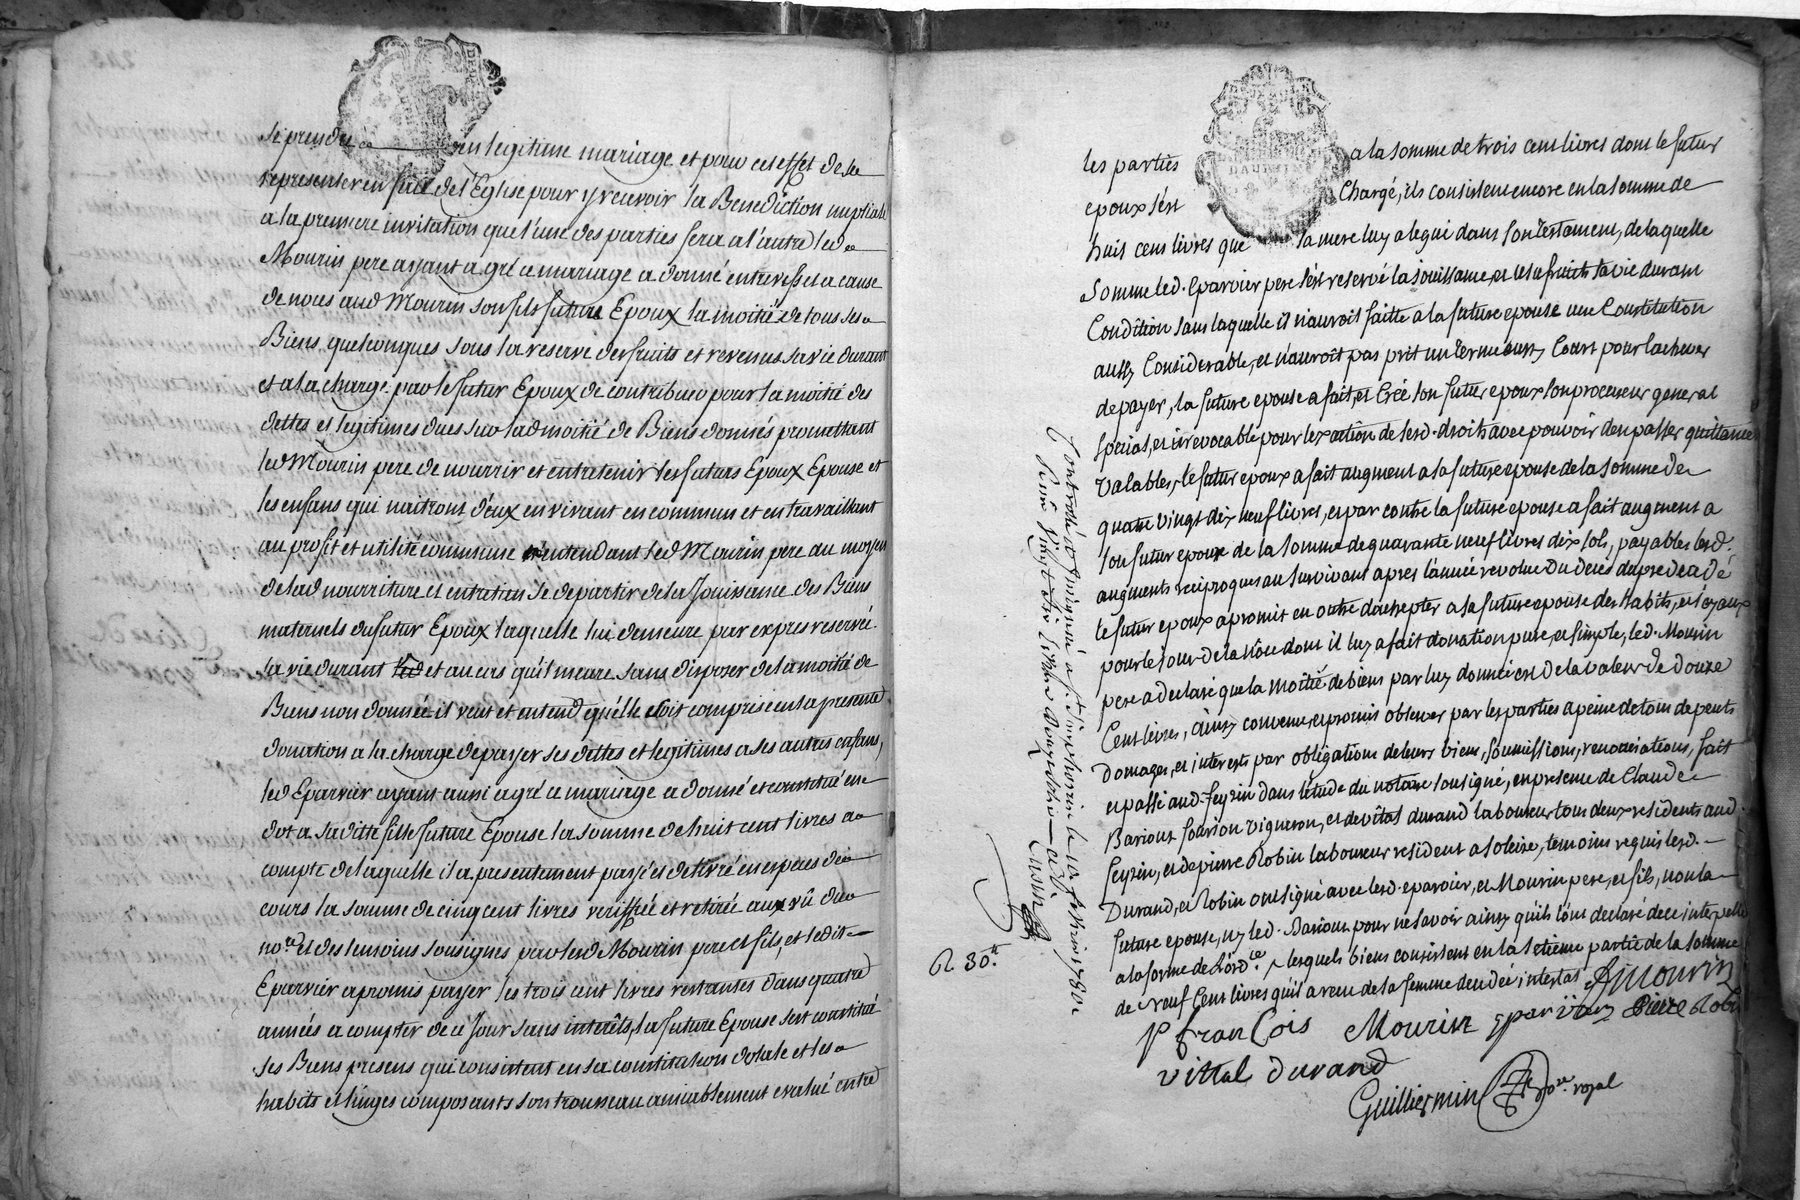 se prendre en legitime mariage et pour cet effet de se
representer en face de l'Eglise pour y recevoir la Benediction nuptiale
a la premiere invitation que l'une des parties fera a l'autre led
Mourin pere ayant agré ce mariage a donné entre vifs et a cause
de noces aud Mourin son fils futur Epoux la moitié de tous ses
Biens quelconques sous la reserve des fruits et revenus sa vie durant
et a la charge par le futur Epoux de contribuer pour la moitié des
dettes et legitimes dues sur lad moitié de Biens donnés promettant
led Mourin pere de nourrir et entretenir les futurs Epoux Epouse et
les enfans qui naitront d'eux en vivant en commun et en travaillant
au profit et utilité commune entendant led Mourin pere au moyen
de lad nourriture et entretien se departir de la Jouissance des Biens
maternels du futur Epoux laquelle lui demeure par exprés reservée
sa vie durant et au cas qu'il meure sans disposer de la moitié de
Biens non donnée il veut et entend qu'elle soit comprise en la presente
donation a la charge de payer ses dettes et legitimes a ses autres enfans,
led Eparvier ayant aussi agré ce mariage a donné et constitué en
dot a sa ditte fille future Epouse la somme de huit cent livres a
compte de laquelle il a presentement payé et delivré en especes de
cours la somme de cinq cent livres veriffiée et retirée au vû du
no.re et des temoins sousignés par lesd Mourin pere et fils, et ledit
Eparvier a promis payer les trois cent livres restantes dans quatre
années a compter de ce jour sans interêts, la future Epouse s'est constitué
ses Biens presens qui consistent en sa constitution dotale et les
habits et linges composants son trousseau amiablement evalué entre
les parties a la somme de trois cent livres dont le futur
epoux s'est Chargé, ils consistent encore en la somme de
DAUPHINE
huit cens livres que sa mere luy a legué dans son Testament, de laquelle
Somme led. Eparvier pere s'est reservé la jouissance, et usufruit sa vie durant
Condition sans laquelle il n'auroit faitte a la future epouse une Constitution
aussy Considerable, et n'auroit pas prit un terme aussy Court pour l'achever
de payer, la future epouse a fait, et Créé son futur epoux son procureur general
special, et irrevocable pour l'exaction de sesd. droits avec pouvoir d'en passer quittances
Valables, le futur epoux a fait augment a la future epouse de la somme de
quatre vingt dix neuf livres, et par contre la future epouse a fait augment a
son futur epoux de la somme de quarante neuf livres dix sols, payables lesd.
augments reciproques au survivant apres l'année revolue du deces du predecedé
le futur epoux a promit en outre d'acheptér a la future epouse des habits, et joyaux
pour le jour de la nôce dont il luy a fait donation pure, et simple, led. Mourin
pere a declaré que la moitié de biens par luy donnée est de la valeur de douze
Cent livres, ainsy convenu et promis observer par les parties a peine de tous depents
Domages, et interests par obligations de leurs biens, soumissions, renonciations, fait
et passé aud. Feyzin dans l'étude du notaire sousigné, en presence de Claude
Barioux vigneron, et de vital durand laboureur tous deux residents aud.
Feyzin, et de pierre Robin laboureur resident a soleize, temoins requis lesd.
Durand, et Robin ont signé avec lesd. eparvier, et Mourin pere, et fils, non la
future epouse, ny led. Barioux pour ne savoir ainsy qu'ils l'ont declaré de ce interpellé
a la forme de l'ord.ce, lesquels biens consistent en la setieme partie de la somme
de neuf Cent livres qu'il a reçu de la femme decedée intestat A Mourin
P françois Mourin eparvier Piere Robin
vittal durand
Guilliermin no.re royal
Controllé et insinué a S.t Simphorien le 10 fevrier 1780
Reçu vingt six livres
R 30.tt